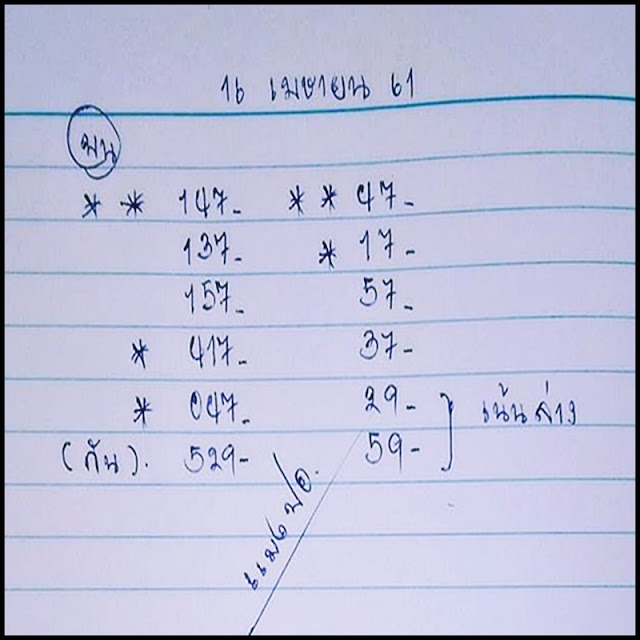 16 เมษายน 61
บน
* * 147- * * 47-
137- * 17-
157- 57-
* 417- 37-
* 047- 29-
(กัน). 529- 59- } เน้นล่าง